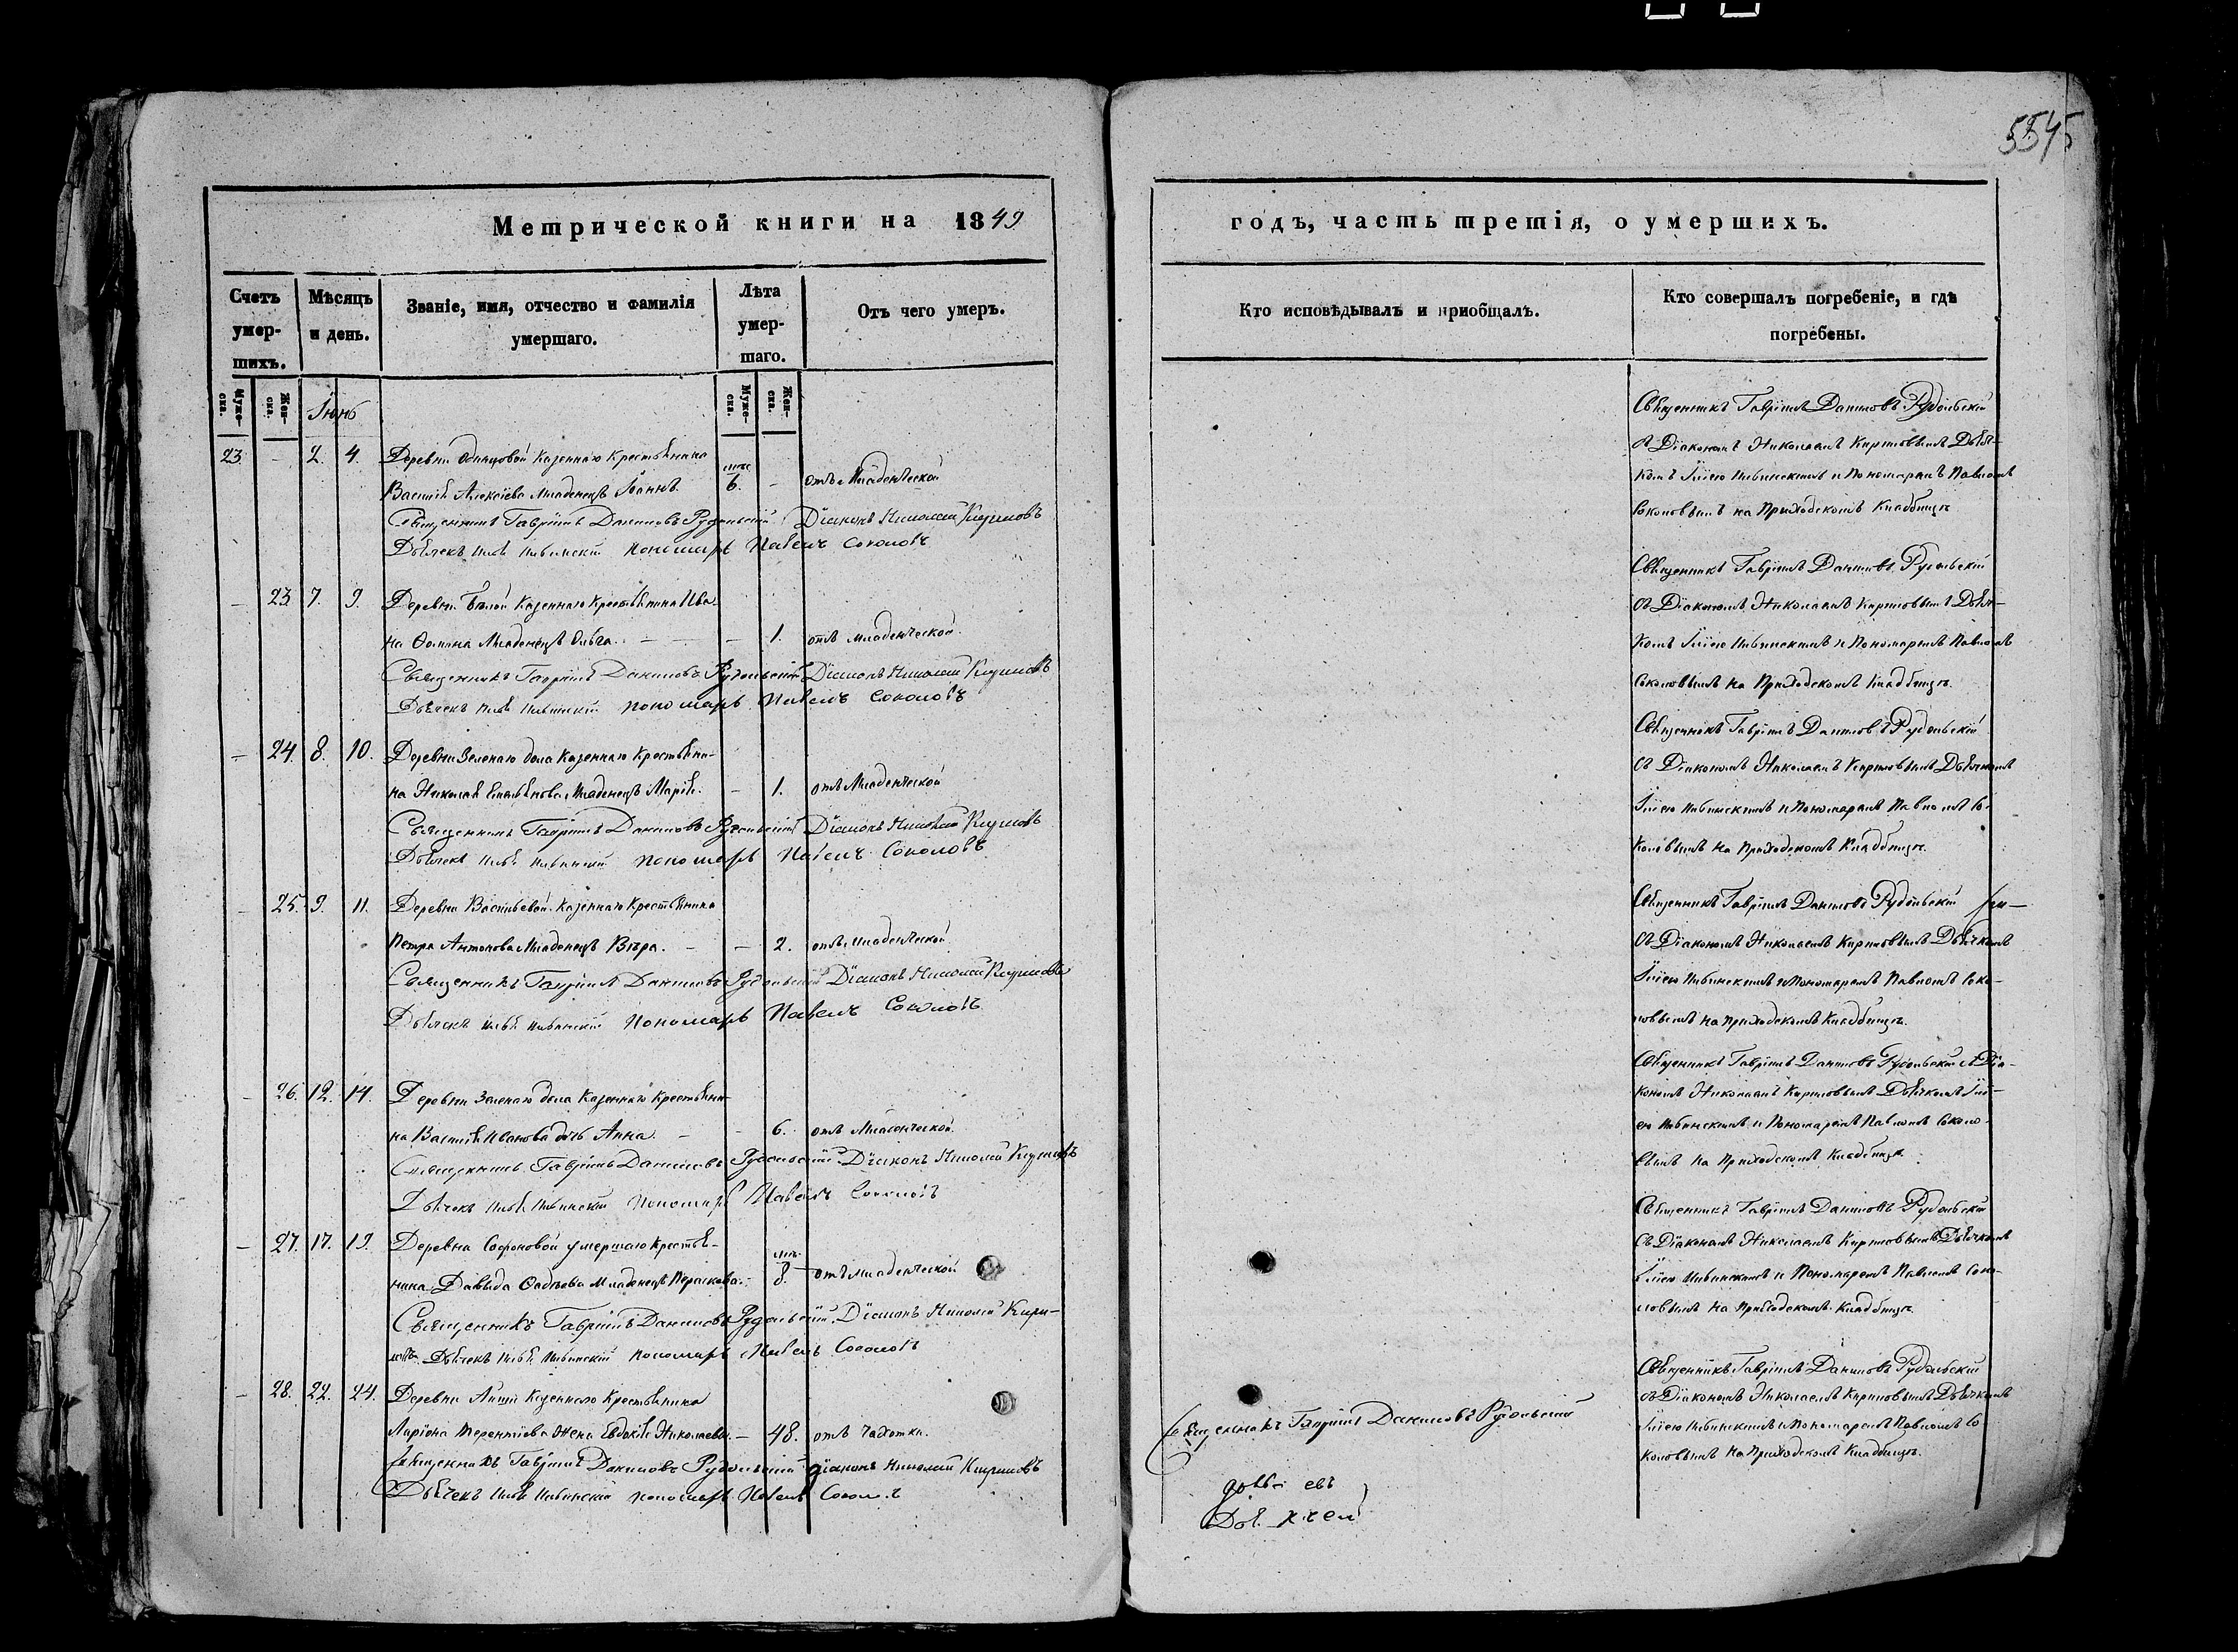 5545
Метрической книги на 1849
Счетъ умер-шихъ.
Мѣсяцъ и день.
Званіе, имя, отчество и фамилія умершаго.
Лѣта умер-шаго.
Отъ чего умеръ.
Муже-ска.
Жен-ска.
Іюнь
Муже-ска.
Жен-ска.
23. – 2. 4. Деревни Одинцовой Казеннаго Крестьянина
Василія Алексіева Младенецъ Іоаннъ. 6. – отъ Младенческой
Священникъ Гавріилъ Даниловъ Рудольскій Діаконъ Николай Кириловъ
Дьячекъ Пономарь Павелъ Соколовъ
– 23. 7. 9. Деревни Белой Казеннаго Крестьянина Ива-
на Фомина Младенецъ Ольга. – – 1. отъ младенческой.
Священникъ Гавріилъ Даниловъ Рудольскій Діаконъ Николай Кириловъ
Дьячекъ Пономарь Павелъ Соколовъ
– 24. 8. 10. Деревни Зеленаго дола Казеннаго Крестьяни-
на Николая Емельянова Младенецъ Марія. – 1. отъ Младенческой
Священникъ Гавріилъ Даниловъ Рудольскій Діаконъ Николай Кириловъ
Дьячекъ Пономарь Павелъ Соколовъ
– 25. 9. 11. Деревни Васильевой Казеннаго Крестьянина
Петра Антонова Младенецъ Вѣра. – – 2. отъ младенческой
Священникъ Гавріилъ Даниловъ Рудольскій Діаконъ Николай Кириловъ
Дьячекъ Пономарь Павелъ Соколовъ
– 26. 12. 14. Деревни Зеленаго дола Казеннаго Крестьяни-
на Василія Иванова дочь Анна. – – 6. отъ Младенческой.
Священникъ Гавріилъ Даниловъ Рудольскій Діаконъ Николай Кириловъ
Дьячекъ Пономарь Павелъ Соколовъ
– 27. 17. 19. Деревни Софоновой умершаго Крестья-
нина Давыда Младенецъ Параскева. – 8. отъ младенческой
Священникъ Гавріилъ Даниловъ Рудольскій Діаконъ Николай Кири-
ловъ Дьячекъ Пономарь Павелъ Соколовъ
– 28. 22. 24. Деревни Казеннаго Крестьянина
Ларіона Терентіева Жена Евдокія Николаева. – 48. отъ чахотки.
Священникъ Гавріилъ Даниловъ Рудольскій Діаконъ Николай Кириловъ
Дьячекъ Пономарь Павелъ
годъ, часть третія, о умершихъ.
Кто исповѣдывалъ и пріобщалъ.
Кто совершалъ погребеніе, и гдѣ погребены.
Священникъ Гавріилъ Даниловъ Рудольскій
съ Діакономъ Николаемъ Кириловымъ Дьяч-
комъ и Пономаремъ Павломъ
Соколовымъ на Приходскомъ Кладбищѣ
Священникъ Гавріилъ Даниловъ Рудольскій
съ Діакономъ Николаемъ Кириловымъ Дьяч-
комъ и Пономаремъ Павломъ
Соколовымъ на Приходскомъ Кладбищѣ.
Священникъ Гавріилъ Даниловъ Рудольскій
съ Діакономъ Николаемъ Кириловымъ Дьячкомъ
и Пономаремъ Павломъ Со-
коловымъ на Приходскомъ Кладбищѣ.
Священникъ Гавріилъ Даниловъ Рудольскій
съ Діакономъ Николаемъ Кириловымъ Дьячкомъ
и Пономаремъ Павломъ Соко-
ловымъ на Приходскомъ Кладбищѣ.
Священникъ Гавріилъ Даниловъ Рудольскій съ Діа-
кономъ Николаемъ Кириловымъ Дьячкомъ
и Пономаремъ Павломъ Соколо-
вымъ на Приходскомъ Кладбищѣ
Священникъ Гавріилъ Даниловъ Рудольскій
съ Діакономъ Николаемъ Кириловымъ Дьячкомъ
и Пономаремъ Павломъ Соко-
ловымъ на Приходскомъ Кладбищѣ.
Священникъ Гавріилъ Даниловъ Рудольскій
съ Діакономъ Николаемъ Кириловымъ Дьячкомъ
и Пономаремъ Павломъ Со
коловымъ на Приходскомъ Кладбищѣ.
Священникъ Гавріилъ Даниловъ Рудольскій